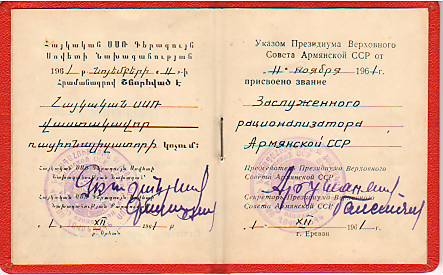 Հայկական ՍՍՌ Գերագույն
Սովետի Նախագահության
1961 թ. նոյեմբերի «11»-ի
Հրամանագրով Շնորհված է
Հայկական ՍՍՌ
վաստակավոր
ռացիոնալիզատորի կոչում:
Հայկական ՍՍՌ Գերագույն Սովետի
1 XII 1961 թ.
ք. Երևան
Указом Президиума Верховного
Совета Армянской ССР от
„11“ ноября 1961 г.
присвоено звание
Заслуженного
рационализатора
Армянской ССР
Председатель Президиума Верховного
Совета Армянской ССР
Секретарь Президиума Верховного
Совета Армянской ССР
„1“ XII 1961 г.
г. Ереван